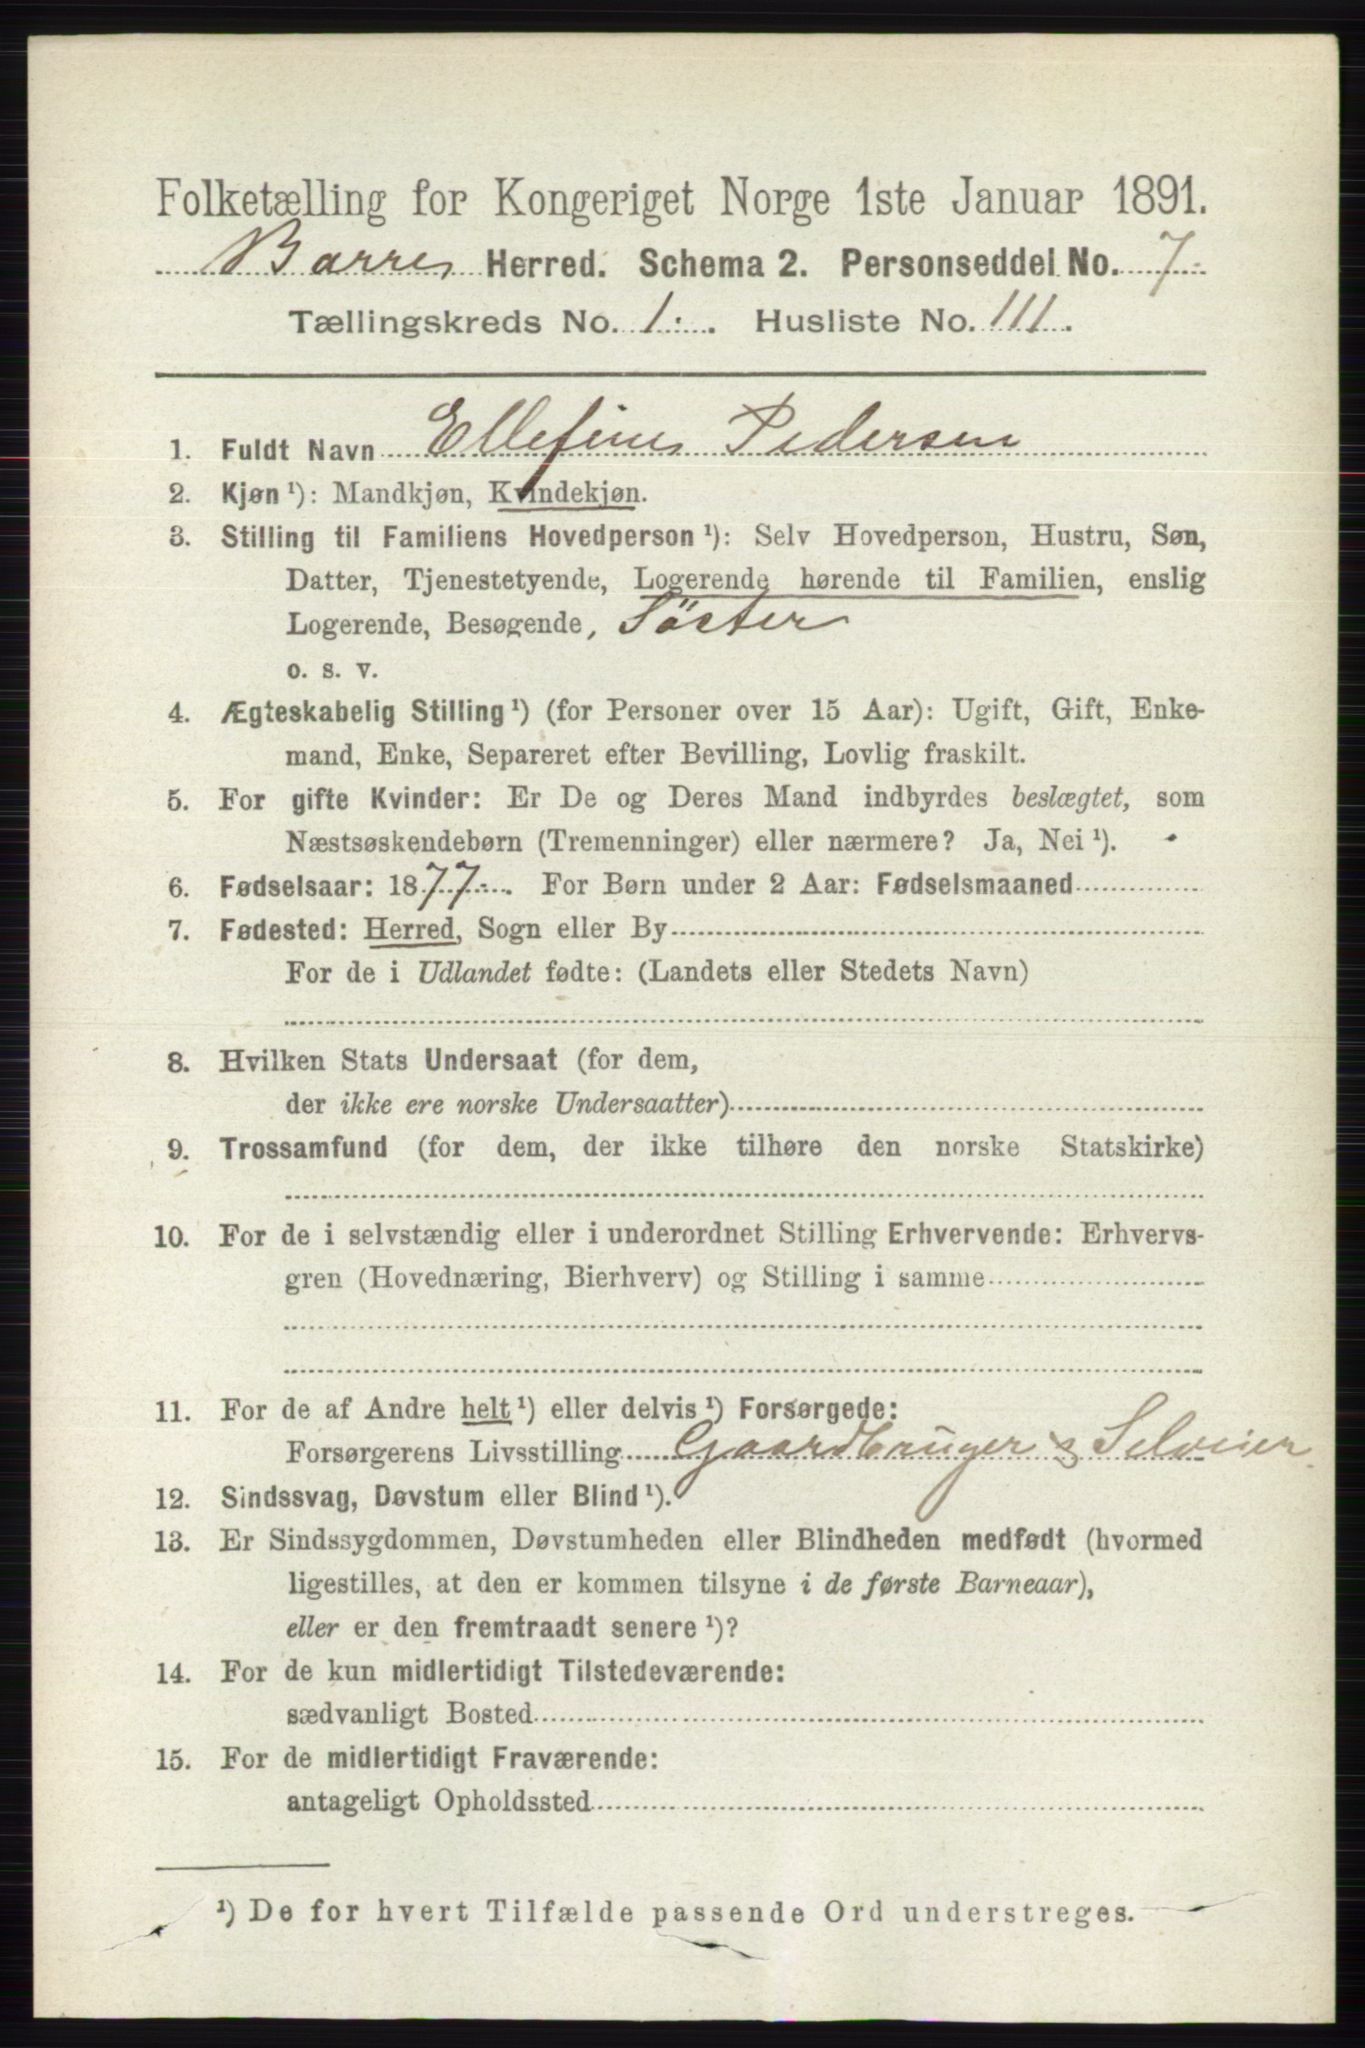 Folketælling for Kongeriget Norge 1ste Januar 1891.
Borre Herred. Schema 2. Personseddel No. 7
Tællingskreds No. 1. Husliste No. 111.
1. Fuldt Navn Ellefine Pedersen
2. Kjøn ¹): Mandkjøn, Kvindekjøn.
3. Stilling til Familiens Hovedperson ¹): Selv Hovedperson, Hustru, Søn,
Datter, Tjenestetyende, Logerende hørende til Familien, enslig
Logerende, Besøgende, Söster
o. s. v.
4. Ægteskabelig Stilling ¹) (for Personer over 15 Aar): Ugift, Gift, Enke-
mand, Enke, Separeret efter Bevilling, Lovlig fraskilt.
5. For gifte Kvinder: Er De og Deres Mand indbyrdes beslægtet, som
Næstsøskendebørn (Tremenninger) eller nærmere? Ja, Nei ¹).
6. Fødselsaar: 1877. For Børn under 2 Aar: Fødselsmaaned
7. Fødested: Herred, Sogn eller By
For de i Udlandet fødte: (Landets eller Stedets Navn)
8. Hvilken Stats Undersaat (for dem,
der ikke ere norske Undersaatter)
9. Trossamfund (for dem, der ikke tilhøre den norske Statskirke)
10. For de i selvstændig eller i underordnet Stilling Erhvervende: Erhvervs-
gren (Hovednæring, Bierhverv) og Stilling i samme
11. For de af Andre helt ¹) eller delvis ¹) Forsørgede:
Forsørgerens Livsstilling Gaardbruger & Selveier
12. Sindssvag, Døvstum eller Blind ¹).
13. Er Sindssygdommen, Døvstumheden eller Blindheden medfødt (hvormed
ligestilles, at den er kommen tilsyne i de første Barneaar),
eller er den fremtraadt senere ¹)?
14. For de kun midlertidigt Tilstedeværende:
sædvanligt Bosted
15. For de midlertidigt Fraværende:
antageligt Opholdssted
¹) De for hvert Tilfælde passende Ord understreges.